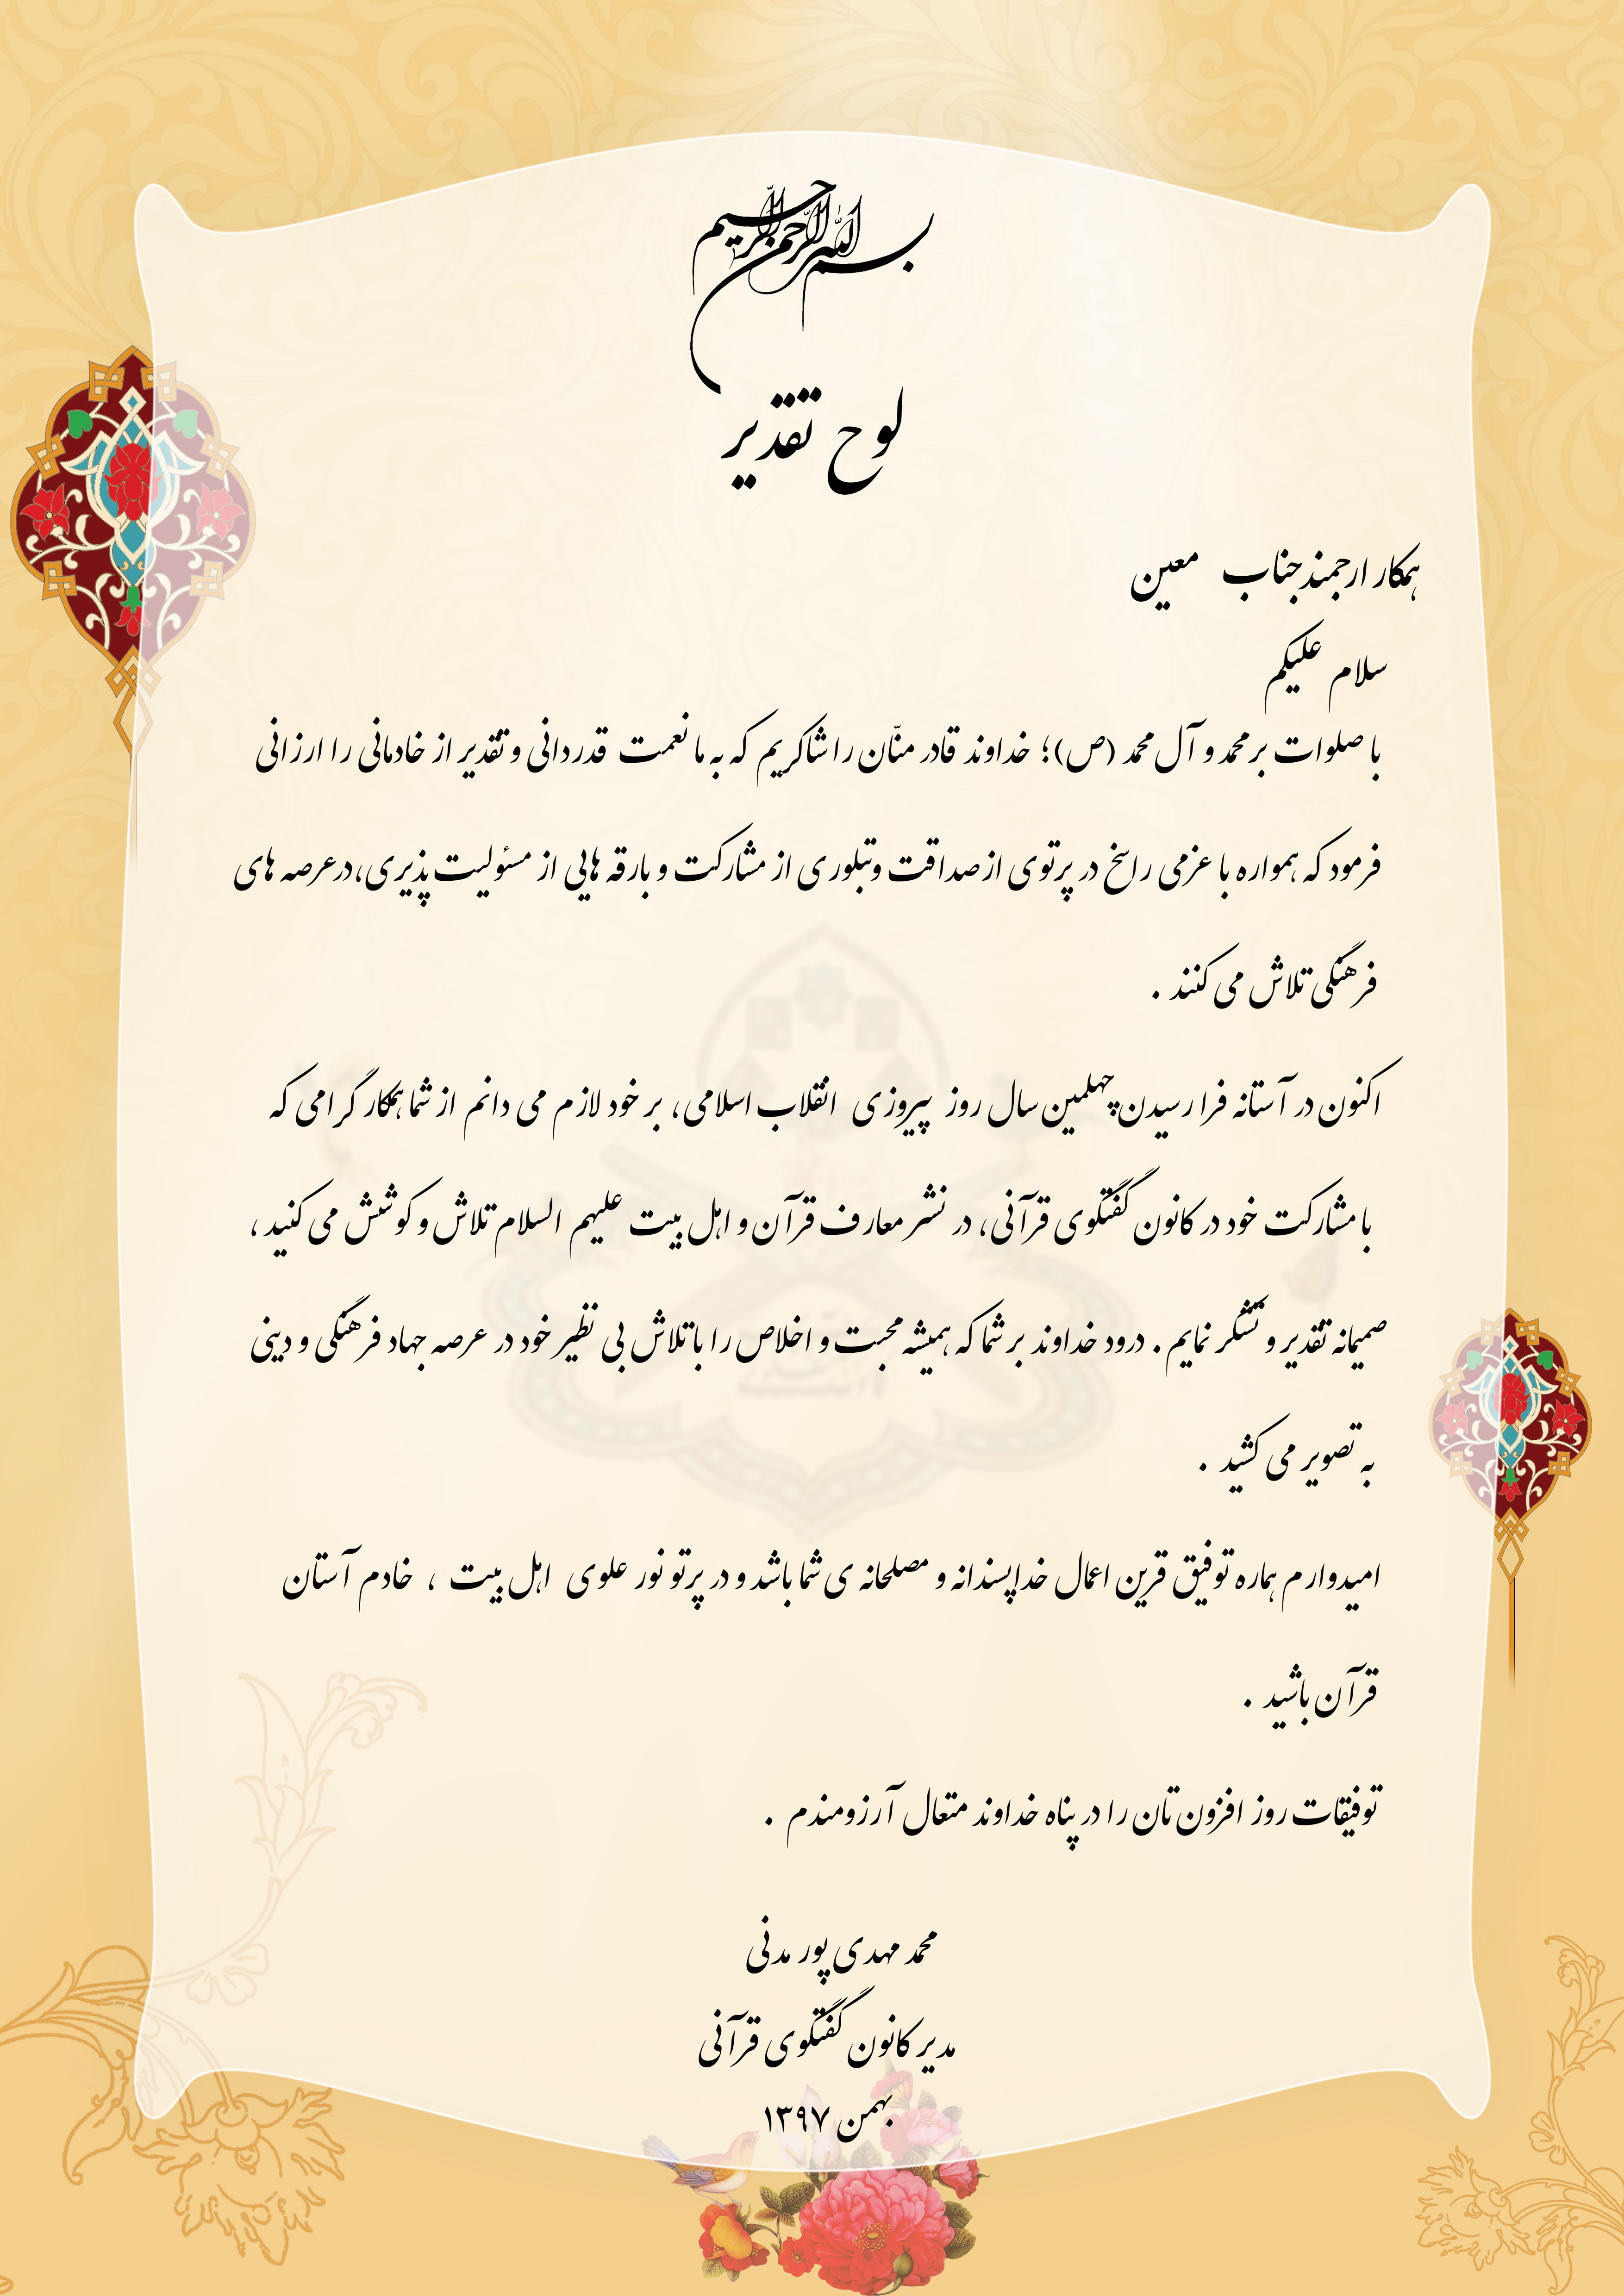 بسم الله الرحمن الرحیم
لوح تقدیر
همکار ارجمند جناب معین
سلام علیکم
با صلوات بر محمد و آل محمد (ص)؛ خداوند قادر منّان را شاکریم که به ما نعمت قدردانی و تقدیر از خادمانی را ارزانی
فرمود که همواره با عزمی راسخ در پرتوی از صداقت وتبلوری از مشارکت و بارقه هایی از مسئولیت پذیری،درعرصه های
فرهنگی تلاش می کنند .
اکنون در آستانه فرا رسیدن چهلمین سال روز پیروزی انقلاب اسلامی، بر خود لازم می دانم از شما همکار گرامی که
با مشارکت خود در کانون گفتگوی قرآنی، در نشر معارف قرآن و اهل بیت علیهم السلام تلاش و کوشش می کنید ،
صمیمانه تقدیر و تشکر نمایم . درود خداوند بر شما که همیشه محبت و اخلاص را با تلاش بی نظیر خود در عرصه جهاد فرهنگی و دینی
به تصویر می کشید .
امیدوارم هماره توفیق قرین اعمال خداپسندانه و مصلحانه ی شما باشد و در پرتو نور علوی اهل بیت ، خادم آستان
قرآن باشید .
توفیقات روز افزون تان را در پناه خداوند متعال آرزومندم .
محمد مهدی پور مدنی
مدیر کانون گفتگوی قرآنی
بهمن ۱۳۹۷